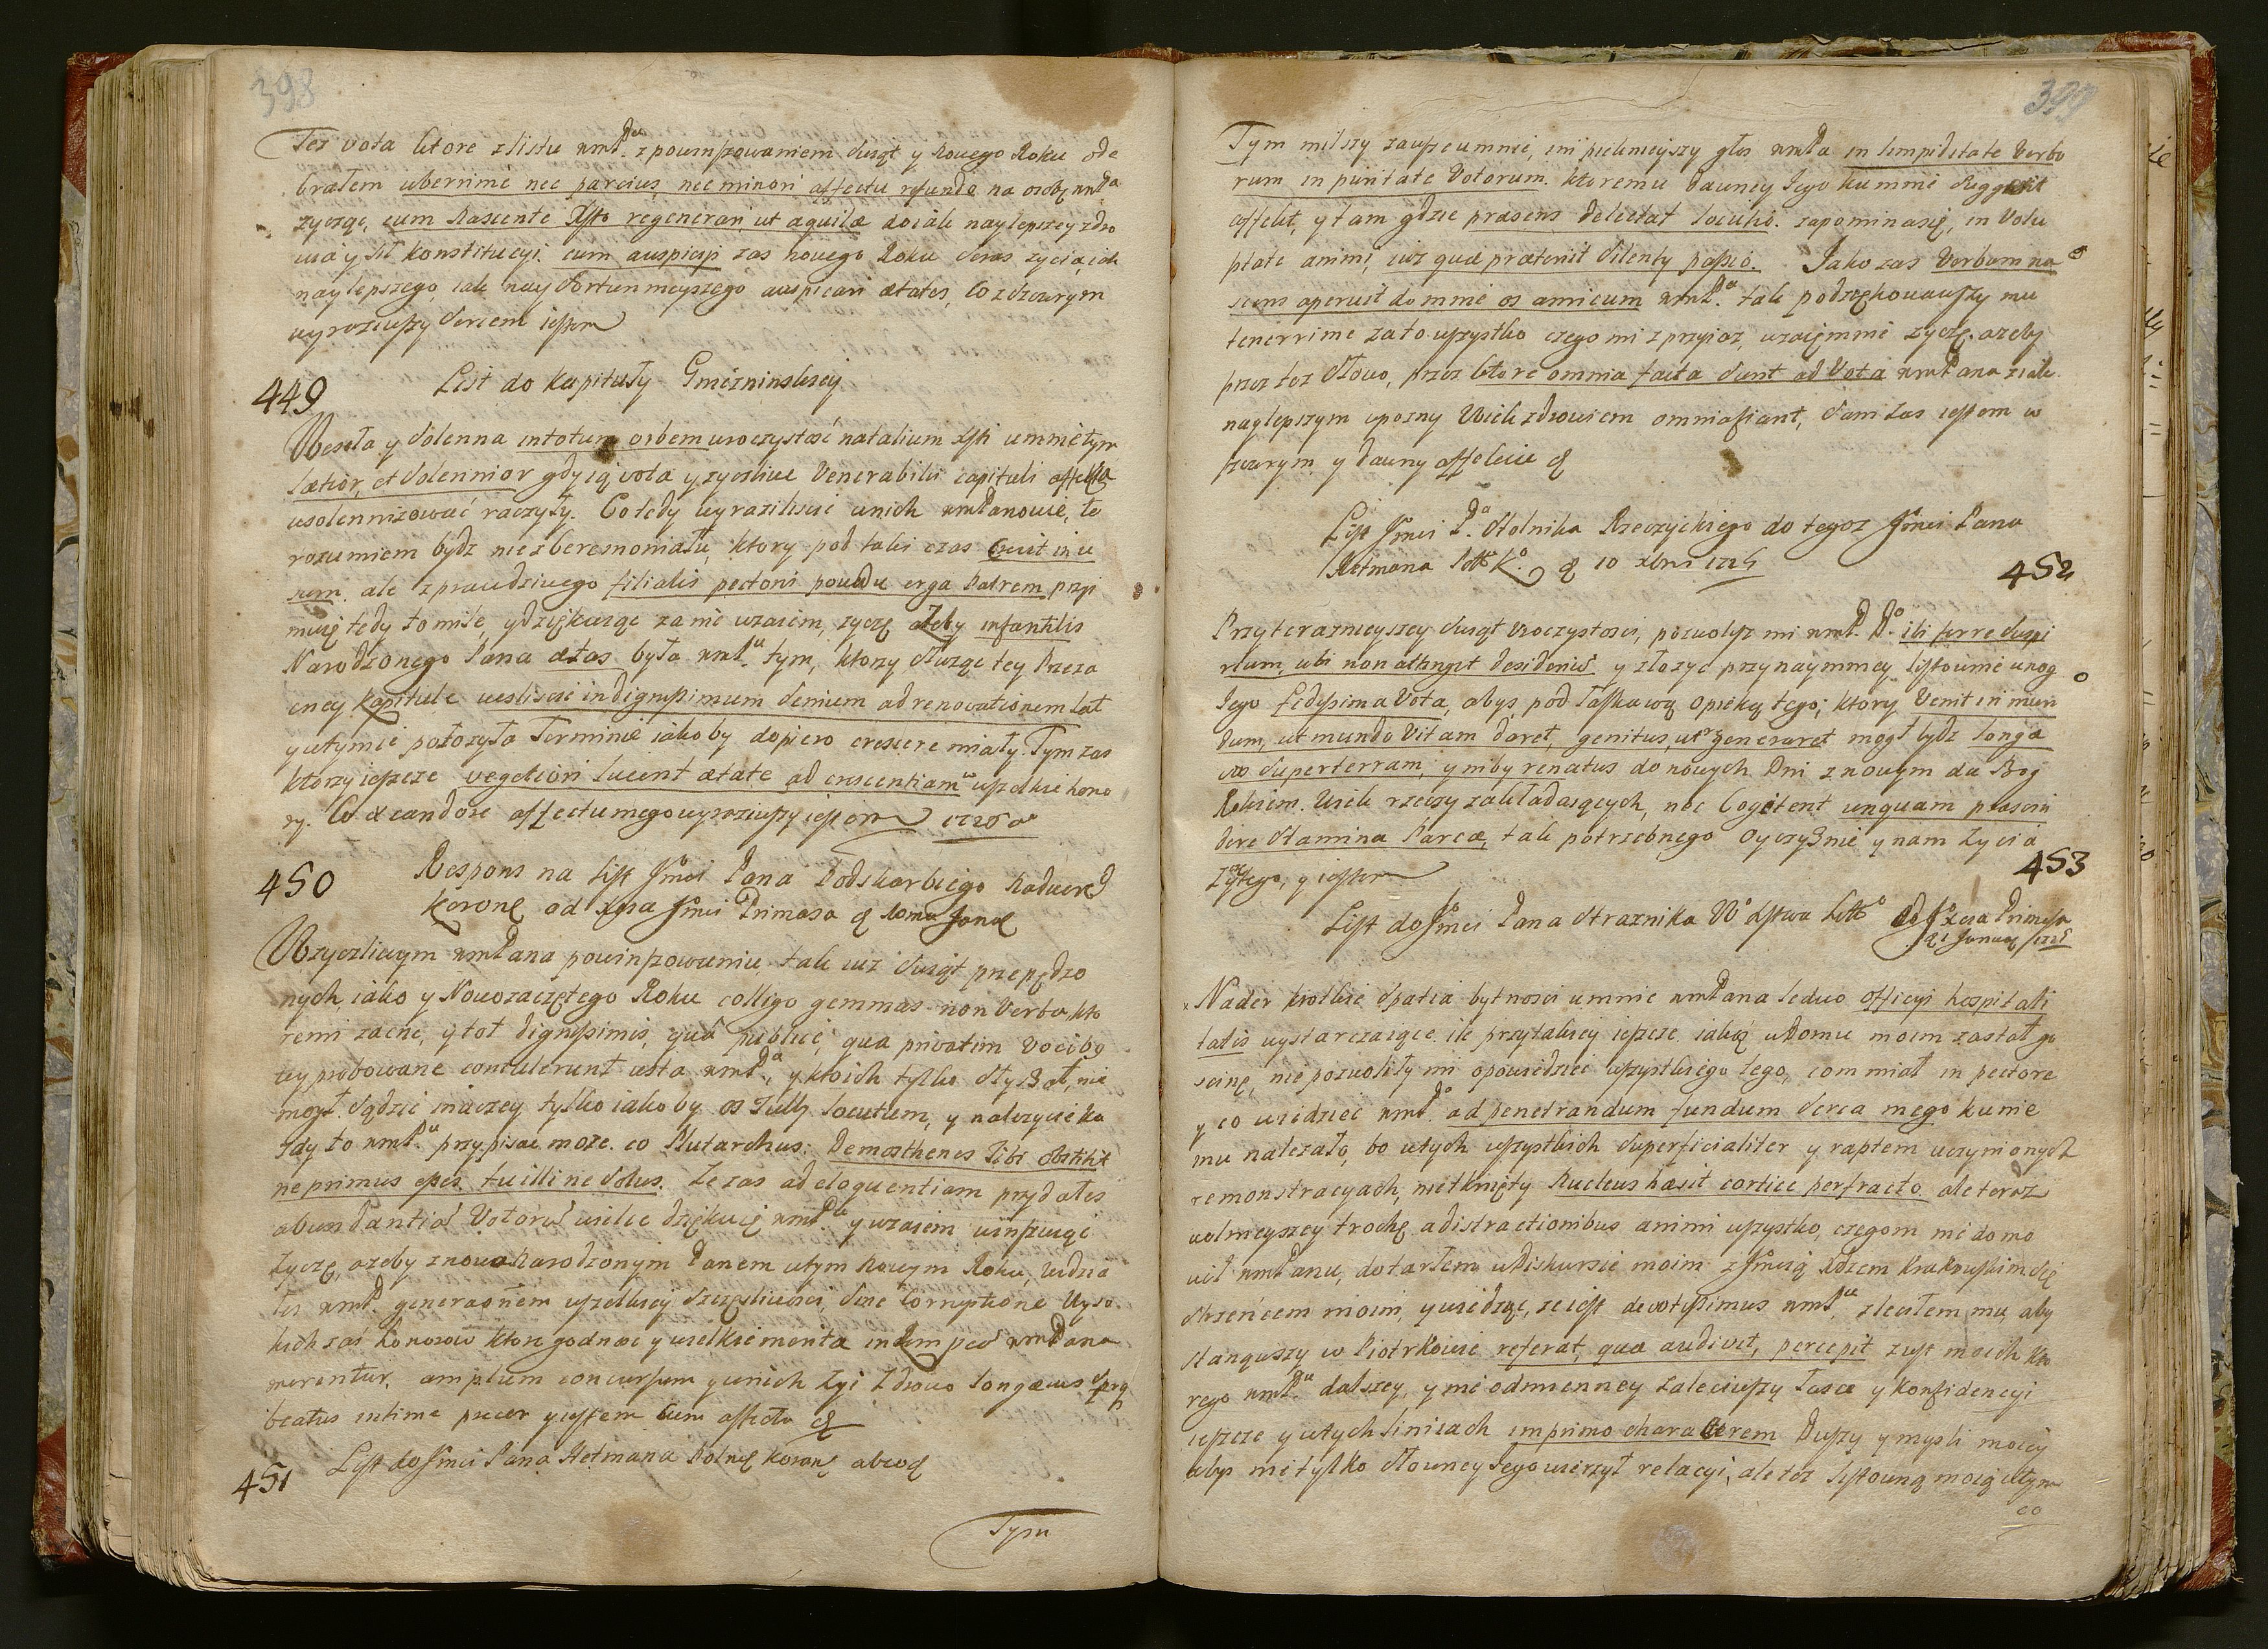 398
Też vota ktore z listu wmP.Da z powinszowaniem Swiąt y Nowego Roku ode
brałem uberrimé nec parcius, nec minori affectu refundo na osobę wmPa
zycząc, cum Nascente Xsto regenerari ut aquilæ do iak naylepszey zdro
wia y sił konstitucyi. cum auspicijs zas nowego Roku Seras zycia, iak
naylepszego, iak nay Fortunnieyszego auspicari ætates, Co z szczerym
wyraziwszy Sercem iestem
449 List do Kapituły Gniezninskiey
Wesoła y Solenna in totum orbem uroczystość natalium Xsti u mnie tym
lætior, et Solennior gdy ią vota y zyczliwe Venerabilis capituli affekta
usolennizować raczyły. Co tedy wyraziliscie w nich wmPanowie, to
rozumiem bydz nie z ceremoniału, ktory pod taki czas exit in u
sum. ale z prawdziwego filialis pectoris powodu erga Patrem, przy
muię tedy to mile, y dziękuiąc za nie wzaiem, zyczę ażeby infantilis
Narodzonego Pana ætas była wmP.a tym, ktory służąc tey Przeza
cney Kapitule weszliscie in dignissimum Senium ad renovationem lat
y w tymie położyła Terminie iakoby dopiero crescere miały. Tym zas
ktorzy ieszcze vegetiori lucent ætate ad crescentiam w wszelkie hono
ry. Co ex candore affectu mego wyraziwszy iestem 1725 a
450 Respons na list Jmci Pana Podskarbiego Nadwer
Koronę od Xsa Jmci Primasa
W zyczliwym wmPana powinszowaniu, tak iuz Swiąt przepędzo
nych, iako y Nowozaczętego Roku colligo gemmas non Verba, kto
remi zacne, y tot dignissimis, quà publicè, qua privatim vocibg
wyprobowane contulerunt usta wmP.a, y ktoich tylko słyszał, nie
mogł sądzić inaczey tylko iakoby os Tully locutum, y nalezycie ka
zdy to wmP.a przypisać moze. co Plutarchus: Demosthenes Tibi obstitit
ne primus esses, tu illi ne Solus. Ze zas ad eloquentiam przydałes
abundantiã Votorũ wielce dziękuię wmP.u y wzaiem winszuiąc
zyczę, azeby z nowo Narodzonym Panem w tym Nowym Roku, widzia
łes wmP. wszelkiey szczęśliwosci, sine corruptione Wyso
kich zaś honorow ktore godność y wielkie merita wmPana
merentur, amplum concursum y w nich zyi zdrowo longævus
beatus intime precor y iestem Cum affectu &
451 List do Jmci Pana Hetmana Polnę Koronę
Tym
399
Tym milszy zawsze u mnie, im pięknieyszy głos wmPa in limpiditate Verbo
rum in puritate Votorum. ktoremu dawney Jego ku mnie suggerit
affekt, y tam gdzie præsens delectat locutio. zapomina się, in Volu
ptate animi, iuz quæ præteriit silenty passio. Jako zas Verbum na
scens aperuit do mnie os amicum wmP.a tak podziękowawszy mu
tenerrime za to wszystko czego mi z przyiaz, wzaięmnie zyczę. azeby
przez toż Słowo, przez ktore omnia facta sunt ad Vota wmPana z iak
naylepszym y pozny Wiek zdrowiem omnia fiant, Sam zas iestem w
szczerym y dawny affekcie &
List Jmci P.a Stolnika Rzeczyckiego do tegoz Jmci Pana
Hetmana
452
Przy teraznieyszey Swiąt Uroczystosci, pozwolisz mi wmP. D.o ibi ferre suspi
rium, ubi non attingit desideriũ y złozyć przynaymniey listownie u nog
Jego fidissima Vota, abys pod łaskawą opieką tego, ktory Venit in mun
dum, ut mundo Vitam daret, genitus, ut generaret mogł bydz longæ
vo super terram, y niby renatus do nowych Dni z nowym da Bog
Rokiem. Wiele rzeczy zakładaiących, nec Cogitent unquam præscin
dere Stamina Parcæ, tak potrzebnego Oyczyźnie y nam zycia
tego, y iestem
453
List do Jmci Pana Straznika W.o Xstwa Litt.o od Xcia Primasa
21 Januaę 1725
Nader krotkie Spatia bytnosci u mnie wmPana ledwo officyi hospitali
tatis wystarczaiące, ile przy takiey ieszcze iakoż w Domu moim zastał go
scinę, nie pozwoliły mi opowiedziec wszystkiego tego, com miał in pectore
y co widziec wmP.o ad penetrandum fundum Serca mego ku nie
mu nalezało, bo w tych wszystkich superficialiter y raptem uczynionych
remonstracyach, nietknięty Nucleus hæsit cortice perfracto ale teraz
wolnieyszey trochę a distractionibus animi wszystko, czegom nie domo
wił wmPanu, dotarłem w Diskursie moim z Jmcią Xdzem Krakowskim Się
strzencem moim, y widząc, ze iest devotissimus wmP.a, zleciłem mu, aby
stanąwszy w Piotrkowie referat, quæ audivit, percepit z ust moich kto
rego wmP.a dalszey, y nieodmienney zaleciwszy łasce y konfidencyi
ieszcze y w tych liniach imprimo characterem Duszy y mysli moiey
abys nie tylko słowney Jego wierzył relacyi, ale też listowną moią w tym
co